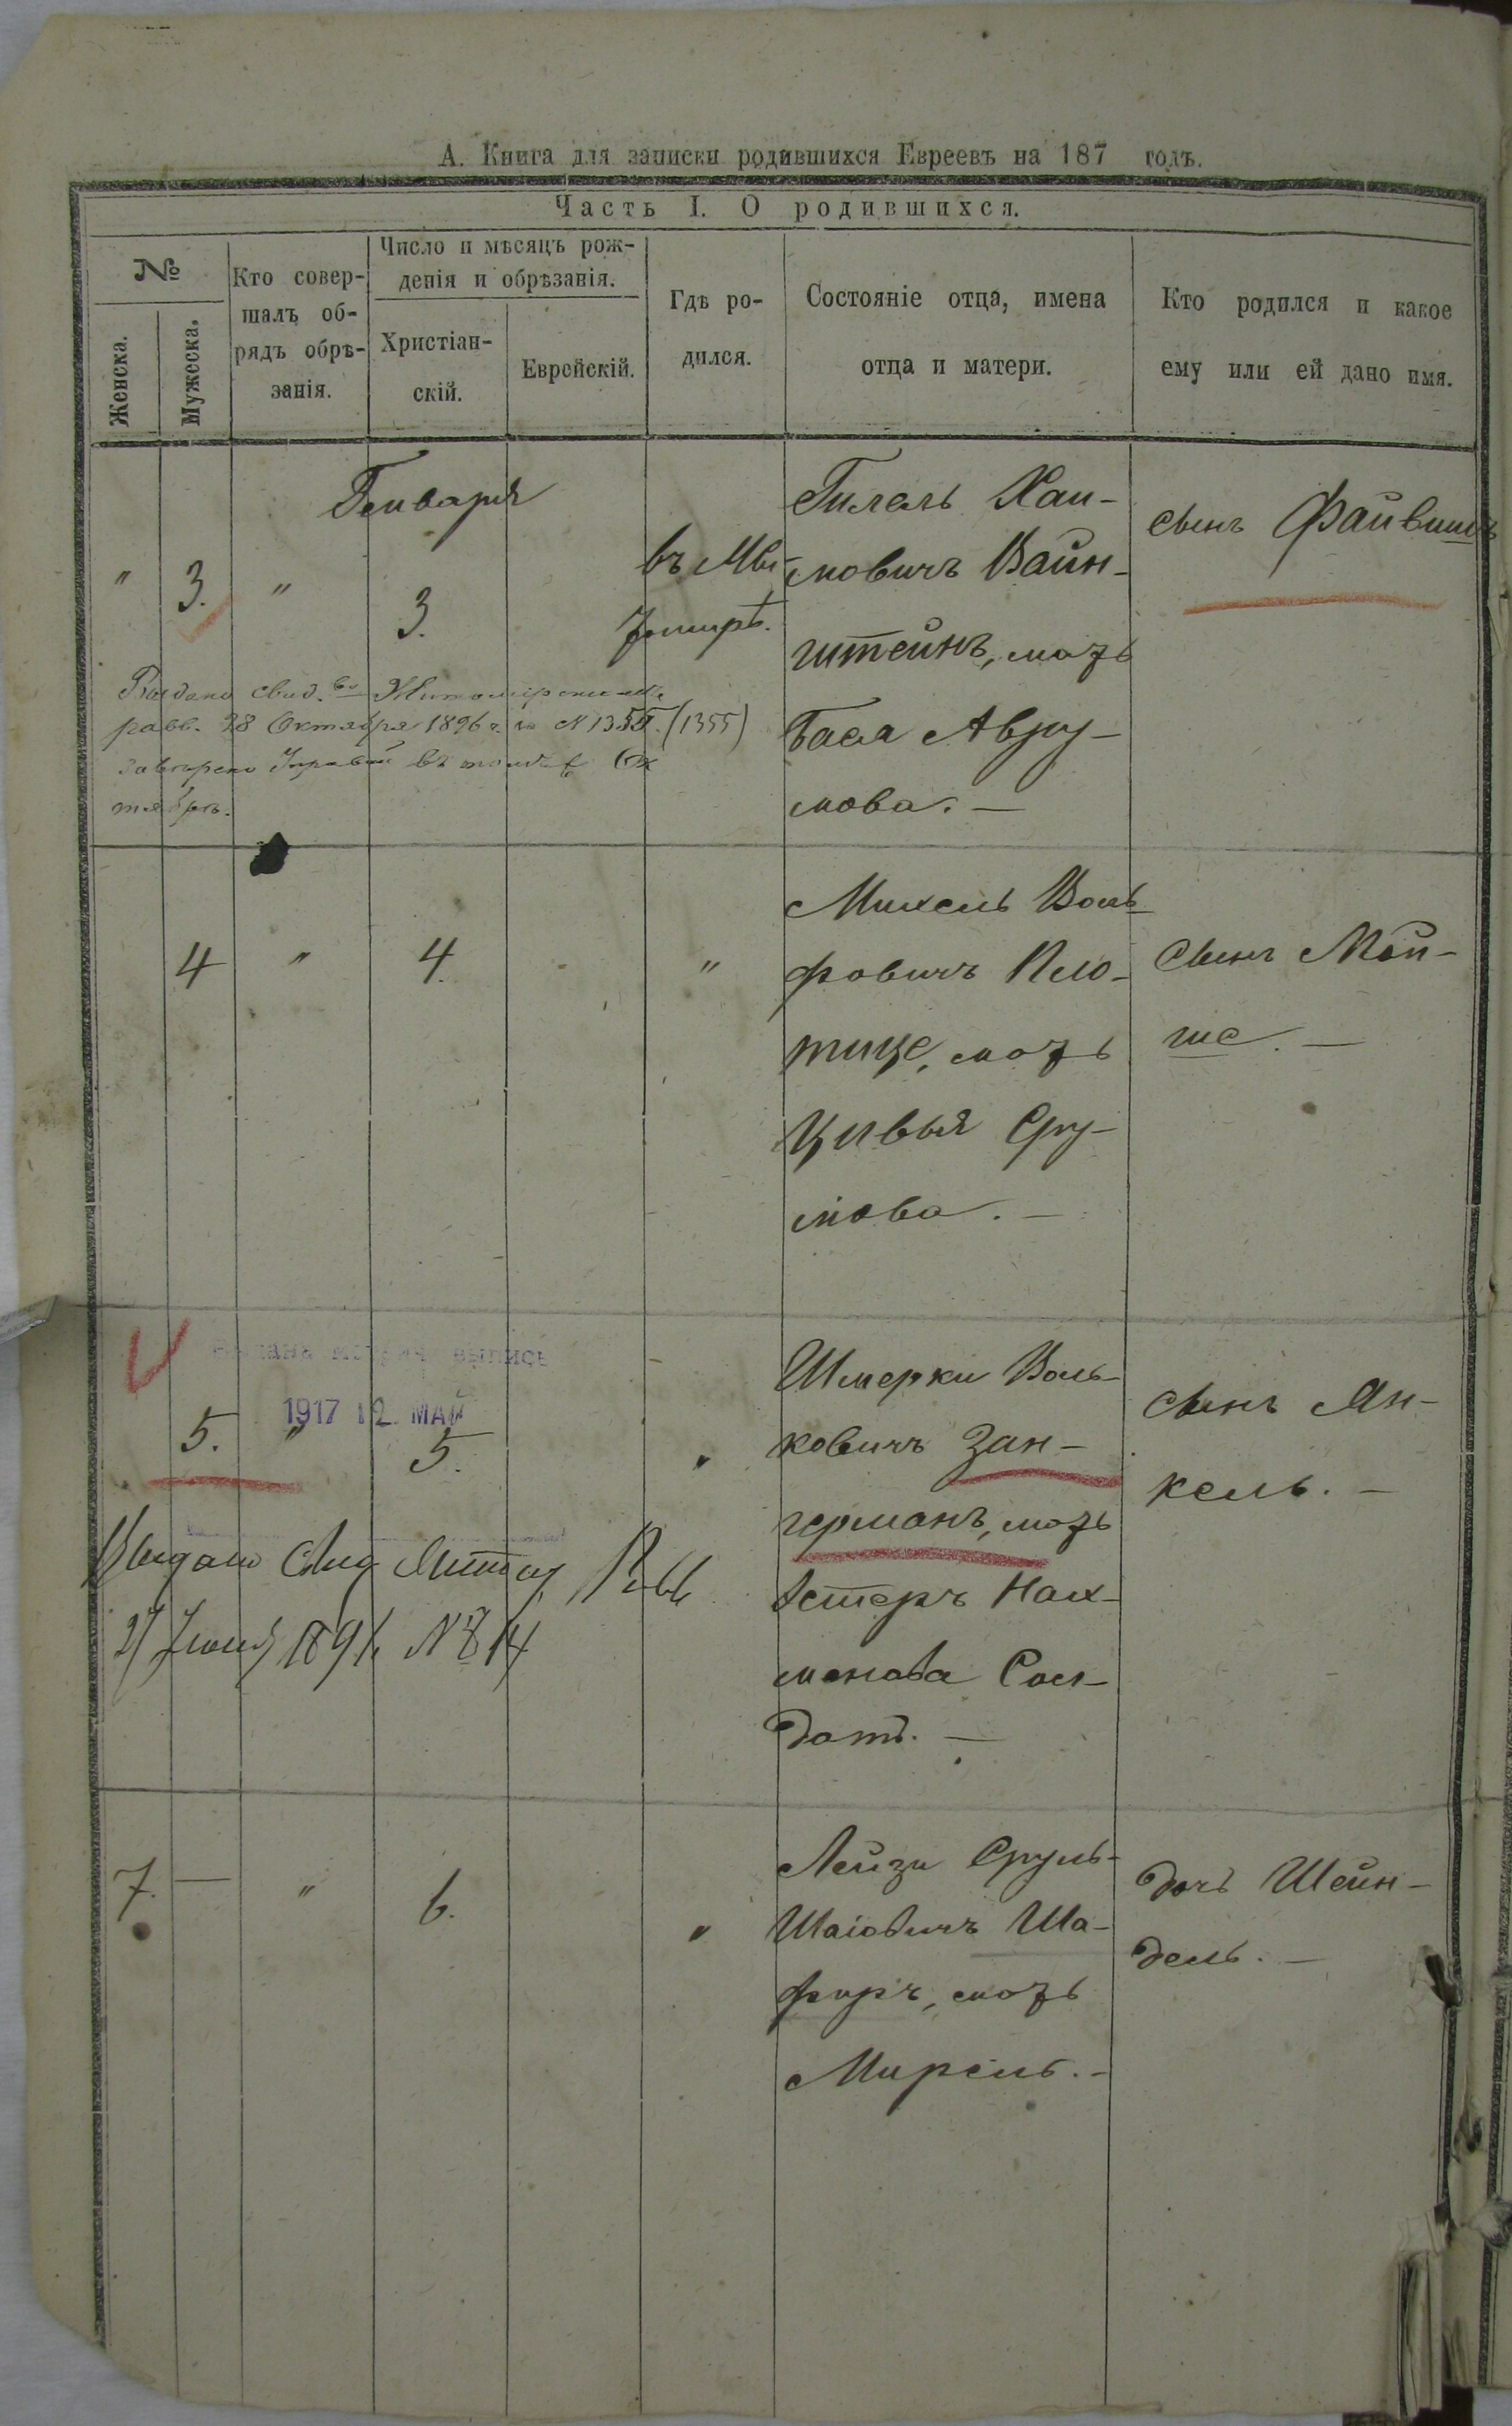 А. Книга для записки родившихся Евреевъ на 187 годъ.
Часть I. О родившихся.
№
Женска.
Мужеска.
Кто совер-
шалъ об-
рядъ обрѣ-
занія.
Число и мѣсяцъ рож-
денія и обрѣзанія.
Христіан-
скій.
Еврейскій.
Гдѣ ро-
дился.
Состояніе отца, имена
отца и матери.
Кто родился и какое
ему или ей дано имя.
Генваря
" 3. " 3.
въ
Гилель Хаи-
мовичъ Вайн-
штейнъ, мать
Бася Авру-
мова. —
сынъ Файвишъ
Выдано свид.во Житомирскимъ
равв. 28 Октября 1896 г. за N 1355. (1355)
Октябрѣ.
4 " 4. "
Михель Воль-
фовичъ Пло-
тице, мать
Цивья Сру-
мова. —
сынъ Мой-
ше. —
выпись
1917 12 МАЙ
5. " 5. "
Шмерки Воль-
ковичъ Зан-
германъ, мать
Эстеръ Нах-
манова Сол-
датъ. —
сынъ Ян-
кель. —
Выдано Свид Равв
27 189 № 814
7. — " 6. "
Лейзи Сруль-
Шаіовичъ Ша-
фиръ, мать
Мирель. —
дочь Шейн-
дель. —